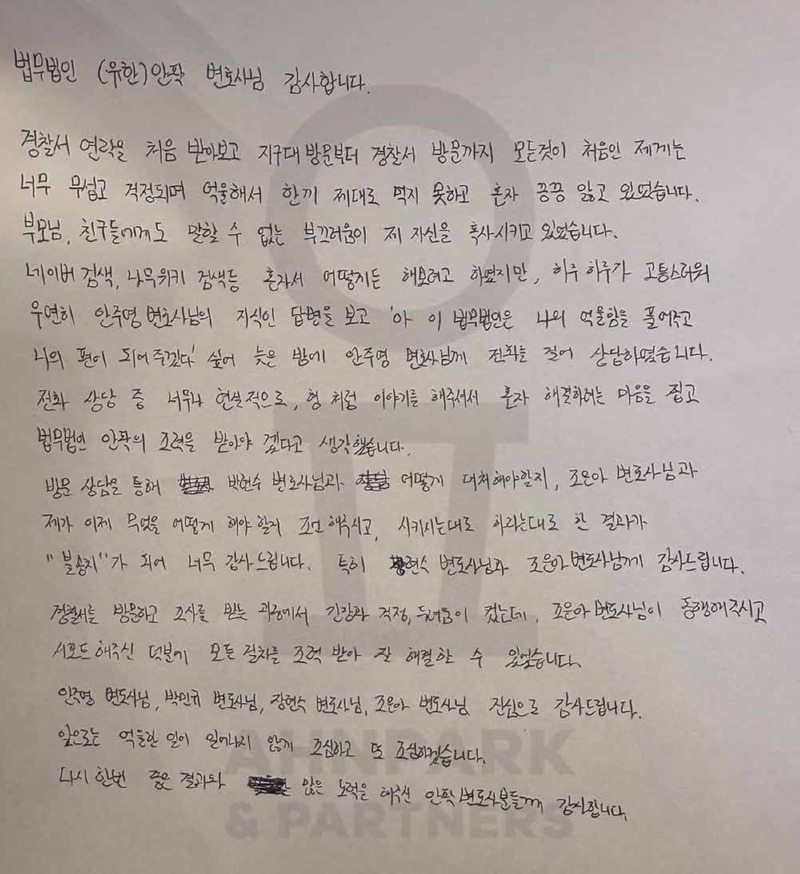 법무법인 (유한)안팍 변호사님 감사합니다.
경찰서 연락을 처음 받아보고 지구대 방문부터 경찰서 방문까지 모든것이 처음인 제게는
너무 무섭고 걱정되며 억울해서 한끼 제대로 먹지 못하고 혼자 끙끙 앓고 있었습니다.
부모님, 친구들에게도 말할 수 없는 부끄러움이 제 자신을 혹사시키고 있었습니다.
네이버 검색, 나무위키 검색등 혼자서 어떻게든 해보려고 하였지만, 하루 하루가 고통스러워
우연히 안주영 변호사님의 지식인 답변을 보고 '아 이 법무법인은 나의 억울함을 풀어주고
나의 편이 되어주겠다' 싶어 늦은 밤에 안주영 변호사님께 전화를 걸어 상담하였습니다.
전화 상담 중 너무나 현실적으로, 형 처럼 이야기를 해주셔서 혼자 해결하려는 마음을 접고
법무법인 안팍의 조력을 받아야 겠다고 생각했습니다.
방문 상담을 통해 박현수 변호사님과 어떻게 대처해야할지, 조은아 변호사님과
제가 이제 무엇을 어떻게 해야 할지 조언 해주시고, 시키시는대로 하라는대로 한 결과가
"불송치"가 되어 너무 감사드립니다. 특히 현수 변호사님과 조은아변호사님께 감사드립니다.
경찰서를 방문하고 조사를 받는 과정에서 긴장과 걱정, 두려움이 컸는데, 조은아변호사님이 동행해주시고
서포트 해주신 덕분에 모든 절차를 조력 받아 잘 해결할 수 있었습니다.
안주영 변호사님, 박민규 변호사님, 장현수 변호사님, 조은아 변호사님 진심으로 감사드립니다.
앞으로는 억울한 일이 일어나지 않게 조심하고 또 조심하겠습니다.
다시 한번 좋은 결과와 많은 노력을 해주신 안팍변호사분들께 감사합니다.
AHNPARK
& PARTNERS